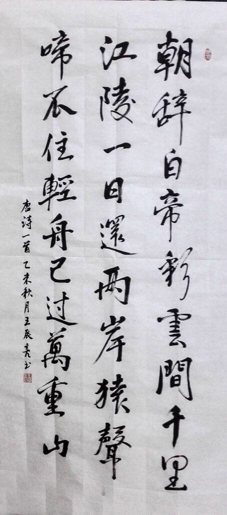 朝辞白帝彩雲間千里
江陵一日還两岸猿聲
啼不住輕舟已过萬重山
唐诗一首乙未秋月王辰書